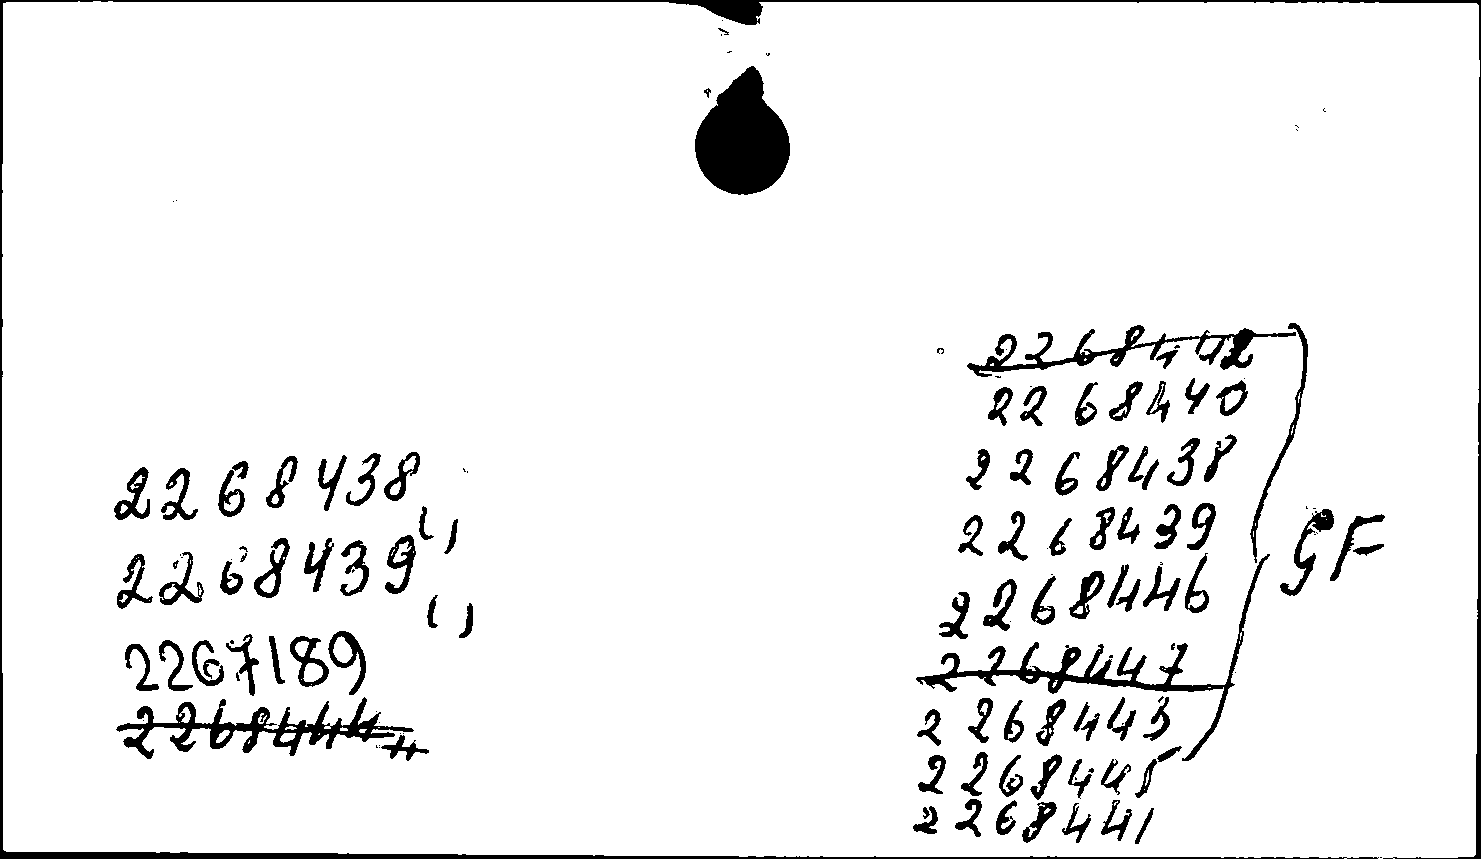 2268438
2268439
2267189
2268444
2268442
2268440
2268438
2268439
2268446
2268447
2268443
2268445
2268441
GF